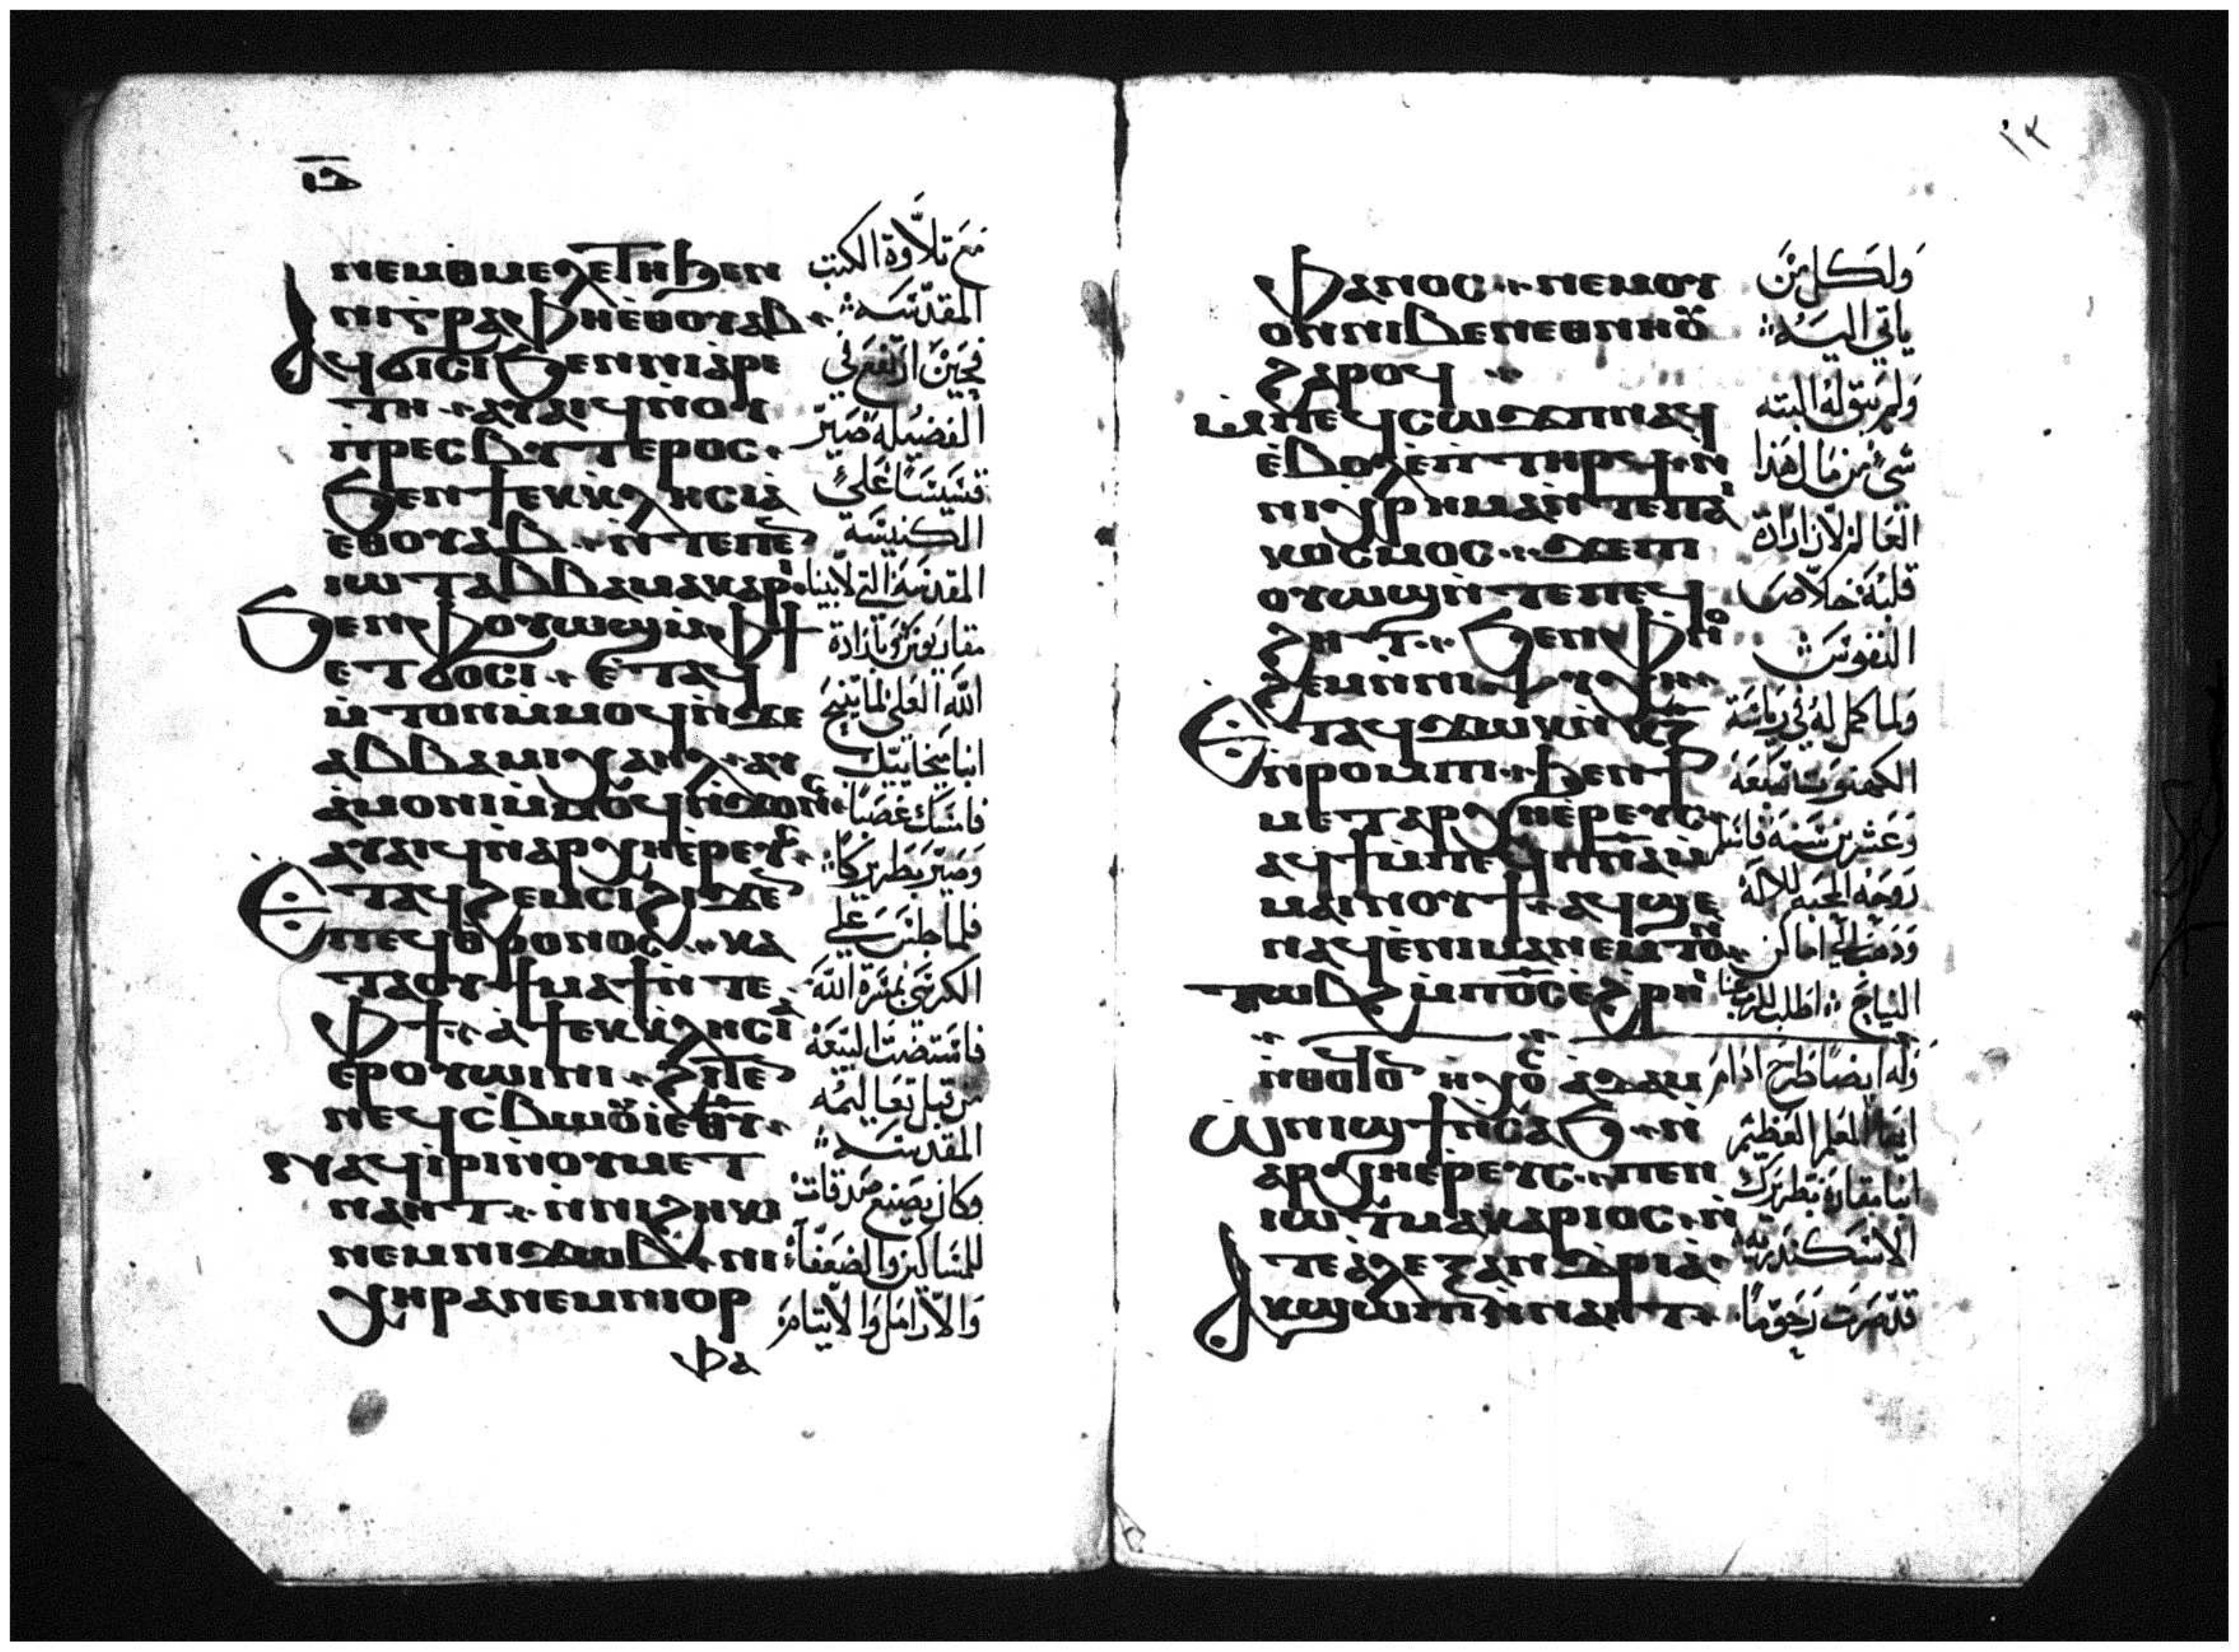 ⲓⲃ
ⲛⲉⲙⲑⲙⲉⲗⲉⲧⲏϧⲉⲛ
ⲛⲓⲅⲣⲁⲫⲏⲉⲑⲟⲩⲁⲃ
ⲁϥϭⲓⲥⲓϧⲉⲛⲛⲓⲁⲣⲉ
ⲧⲏ ⲁⲩⲁⲓϥⲛⲟⲩ
ⲡⲣⲉⲥⲃⲩⲧⲉⲣⲟⲥ
ϧⲉⲛϯⲉⲕⲕⲗⲏⲥⲓⲁ
ⲉⲑⲟⲩⲁⲃ ⲛⲧⲉⲡⲉ
ⲓⲱⲧⲁⲃⲃⲁⲙⲁⲕⲁⲣⲓ
ϧⲉⲛⲫⲟⲩⲱϣⲙⲫϯ
ⲉⲧϭⲟⲥⲓ ⲉⲧⲁϥ
ⲙⲧⲟⲛⲙⲙⲟϥⲛϫⲉ
ⲁⲃⲃⲁⲙⲓⲭⲁⲏⲗ ⲁⲩ
ⲁⲙⲟⲛⲓⲙⲙⲟϥⲛϫⲟⲛⲥ
ⲁⲩⲁⲓϥⲛⲁⲣⲭⲏⲉⲣⲉⲩⲥ
ⲉⲧⲁϥϩⲉⲙⲥⲓϩⲓϫⲉ
ⲡⲉϥⲑⲣⲟⲛⲟⲥ ⲕⲁ
ⲧⲁⲟⲩϯⲙⲁϯⲛⲧⲉ
ⲫϯ ⲁϯⲉⲕⲕⲗⲏⲥⲓⲁ
ⲉⲣⲟⲩⲱⲓⲛⲓ ϩⲓⲧⲉ
ⲛⲉϥⲥⲃⲱⲟⲩⲓⲉⲑⲩ
ⲛⲁϥⲓⲣⲓⲛⲟⲩⲙⲉⲧ
ⲛⲁⲏⲧ ⲛⲛⲓϩⲏⲕⲓ
ⲛⲉⲙⲛⲓϫⲱⲃ ⲛⲓ
ⲭⲏⲣⲁⲛⲉⲙⲛⲓⲟⲣ
ⲫⲁ
مَعَ تلاَوة الكتب
المقدّسَه
فحِينَ ارتفعَ في
الفضيله صَيّر
قسّيسًا عَلىَ
الكنيسَة
المقدسَة التي لابينا
مقاريوس وَبارَادة
اللّه العَلي لما تنيحَ
انبا ميخاييل
فامسَك غصبًا
وَصَيّر بَطريَركًا
فلما جلسَ عَلي
الكرسَي بمسَرة اللّه
فاستضت البيعَة
من قبل تعاليمه
المقدسَه
وكان يصَنع صَدقات
للمسَاكين والضعَفآء
وَالارامل وَالايتامَ
١٢
ⲫⲁⲛⲟⲥ ⲛⲉⲙⲟⲩ
ⲟⲛⲛⲓⲃⲉⲛⲉⲑⲛⲏⲟⲩ
ϩⲁⲣⲟϥ
ⲙⲡⲉϥⲥⲱϫⲡⲛⲁϥ
ⲉⲃⲟⲗⲉⲡⲧⲏⲣϥ ⲛ
ⲛⲓⲭⲣⲏⲙⲁⲛⲧⲉⲡⲁⲓ
ⲕⲟⲥⲙⲟⲥ ϫⲉⲡⲓ
ⲟⲩⲱϣⲛⲧⲉⲡⲉϥ
ϩⲏⲧ ϧⲉⲛⲫⲛⲟ
ϩⲉⲙⲛⲛⲓⲯⲩⲭⲏ
ⲉⲧⲁϥϫⲱⲕⲛⲕⲍ
ⲛⲣⲟⲙⲡⲓ ϧⲉⲛϯ
ⲙⲉⲧⲁⲣⲭⲏⲉⲣⲉⲩⲥ
ⲁϥϯⲙⲡⲉϥⲡⲛⲁⲙ
ⲙⲁⲓⲛⲟⲩϯ ⲁϥϣⲉ
ⲛⲁϥⲉⲛⲓⲙⲁⲛⲉⲙⲧⲟⲛ
ⲧⲱⲃϩⲙⲡⲟⲥⲉϩⲣⲏⲓ
ⲛⲑⲟϥⲟⲛ ⲏⲭⲟⲥ ⲁⲇⲁⲙ
ⲱⲡⲓⲛⲓϣϯⲛⲥⲁϧ ⲡⲓ
ⲁⲣⲭⲏⲉⲣⲉⲩⲥ ⲡⲉⲛ
ⲓⲱⲧⲙⲁⲕⲁⲣⲓⲟⲥ ⲛ
ⲧⲉⲁⲗⲉⲝⲁⲛⲇⲣⲓⲁ
ⲁⲕϣⲱⲡⲓⲛⲛⲁⲏⲧ
وَلكل مَن
ياتي اليَه
وَلم يبَق لهُ البته
شيَ من مَال هَذا
العَالم لان ارادة
قلبَه خلاصَ
النفوسَ
وَلما كمل لهُ في رياسَة
الكهنوت سَبعَة
وَعَشرين سَنة فاسَلم
رَوحه المحبَه للاله
وَذهَب الي اماكن
النيَاح اطلب للرب عنا
وَلهُ ايضًا طرح ادامَ
ايهَا المعَلم العَظيم
ابَنا مقاره بَطريَرك
الاسَكندريه
قد صَرت رَحومًا